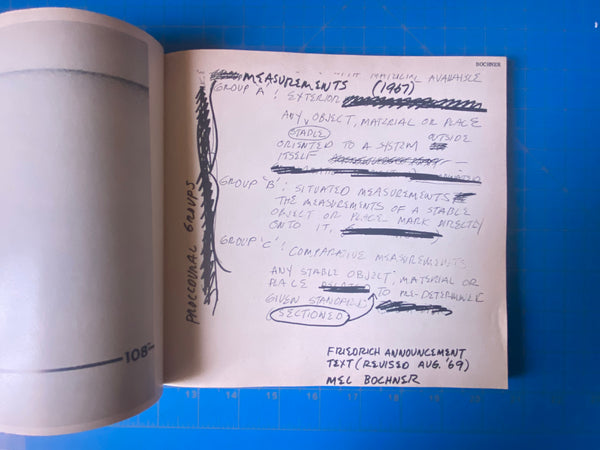 BOCHNER
WITH MATERIAL AVAILABLE
MEASUREMENTS (1967)
GROUP 'A': EXTERIOR
ANY OBJECT, MATERIAL OR PLACE
STABLE OUTSIDE
ORIENTED TO A SYSTEM
ITSELF
GROUP 'B': SITUATED MEASUREMENTS
THE MEASUREMENTS OF A STABLE
OBJECT OR PLACE MARK DIRECTLY
ONTO IT,
GROUP 'C': COMPARATIVE MEASUREMENTS
ANY STABLE OBJECT, MATERIAL OR
PLACE TO PRE-DETERMINED
GIVEN STANDARD
SECTIONED
PROCEDURAL GROUPS
FRIEDRICH ANNOUNCEMENT
TEXT (REVISED AUG. '69)
MEL BOCHNER
108"
13
15
16
17
18
19
20